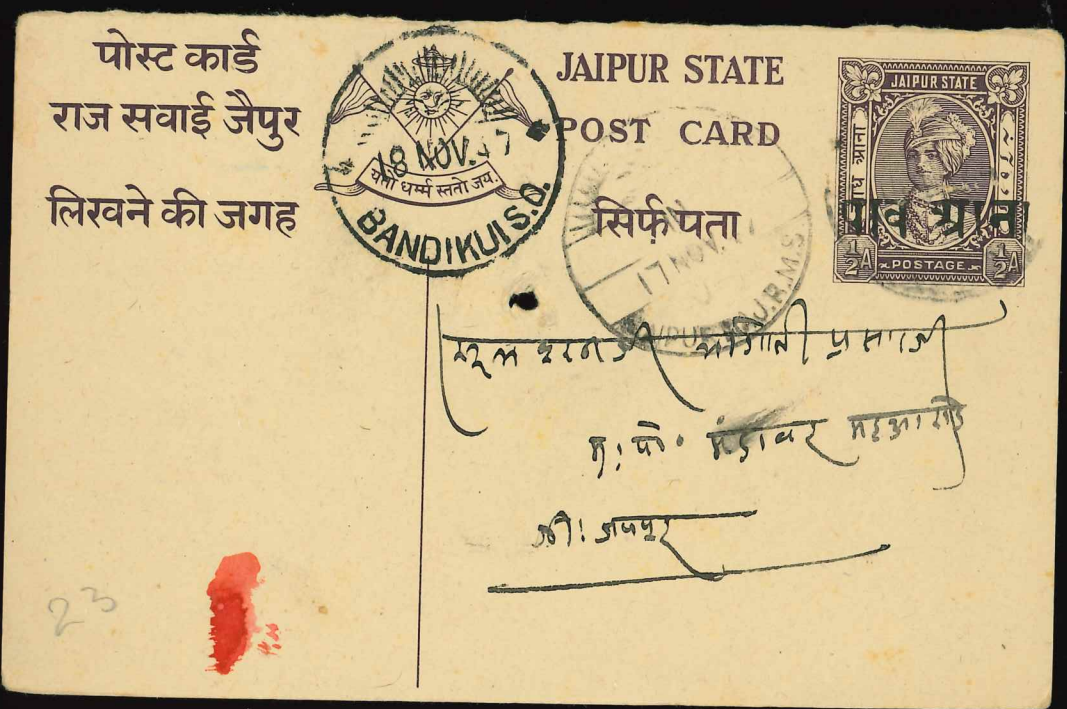 पोस्ट कार्ड
राज सवाई जैपुर
लिखने की जगह
18 NOV.47
यतो धर्म्म स्ततो जय.
BANDIKUI S.O.
JAIPUR STATE
POST CARD
सिर्फ़ पता
17 NOV.
R.M.S.
JAIPUR STATE
आध आना
पाव आना
½A POSTAGE ½A
प्रसादजी
मु: पो. मंडावर महुआ रोड
जी: जयपुर
23